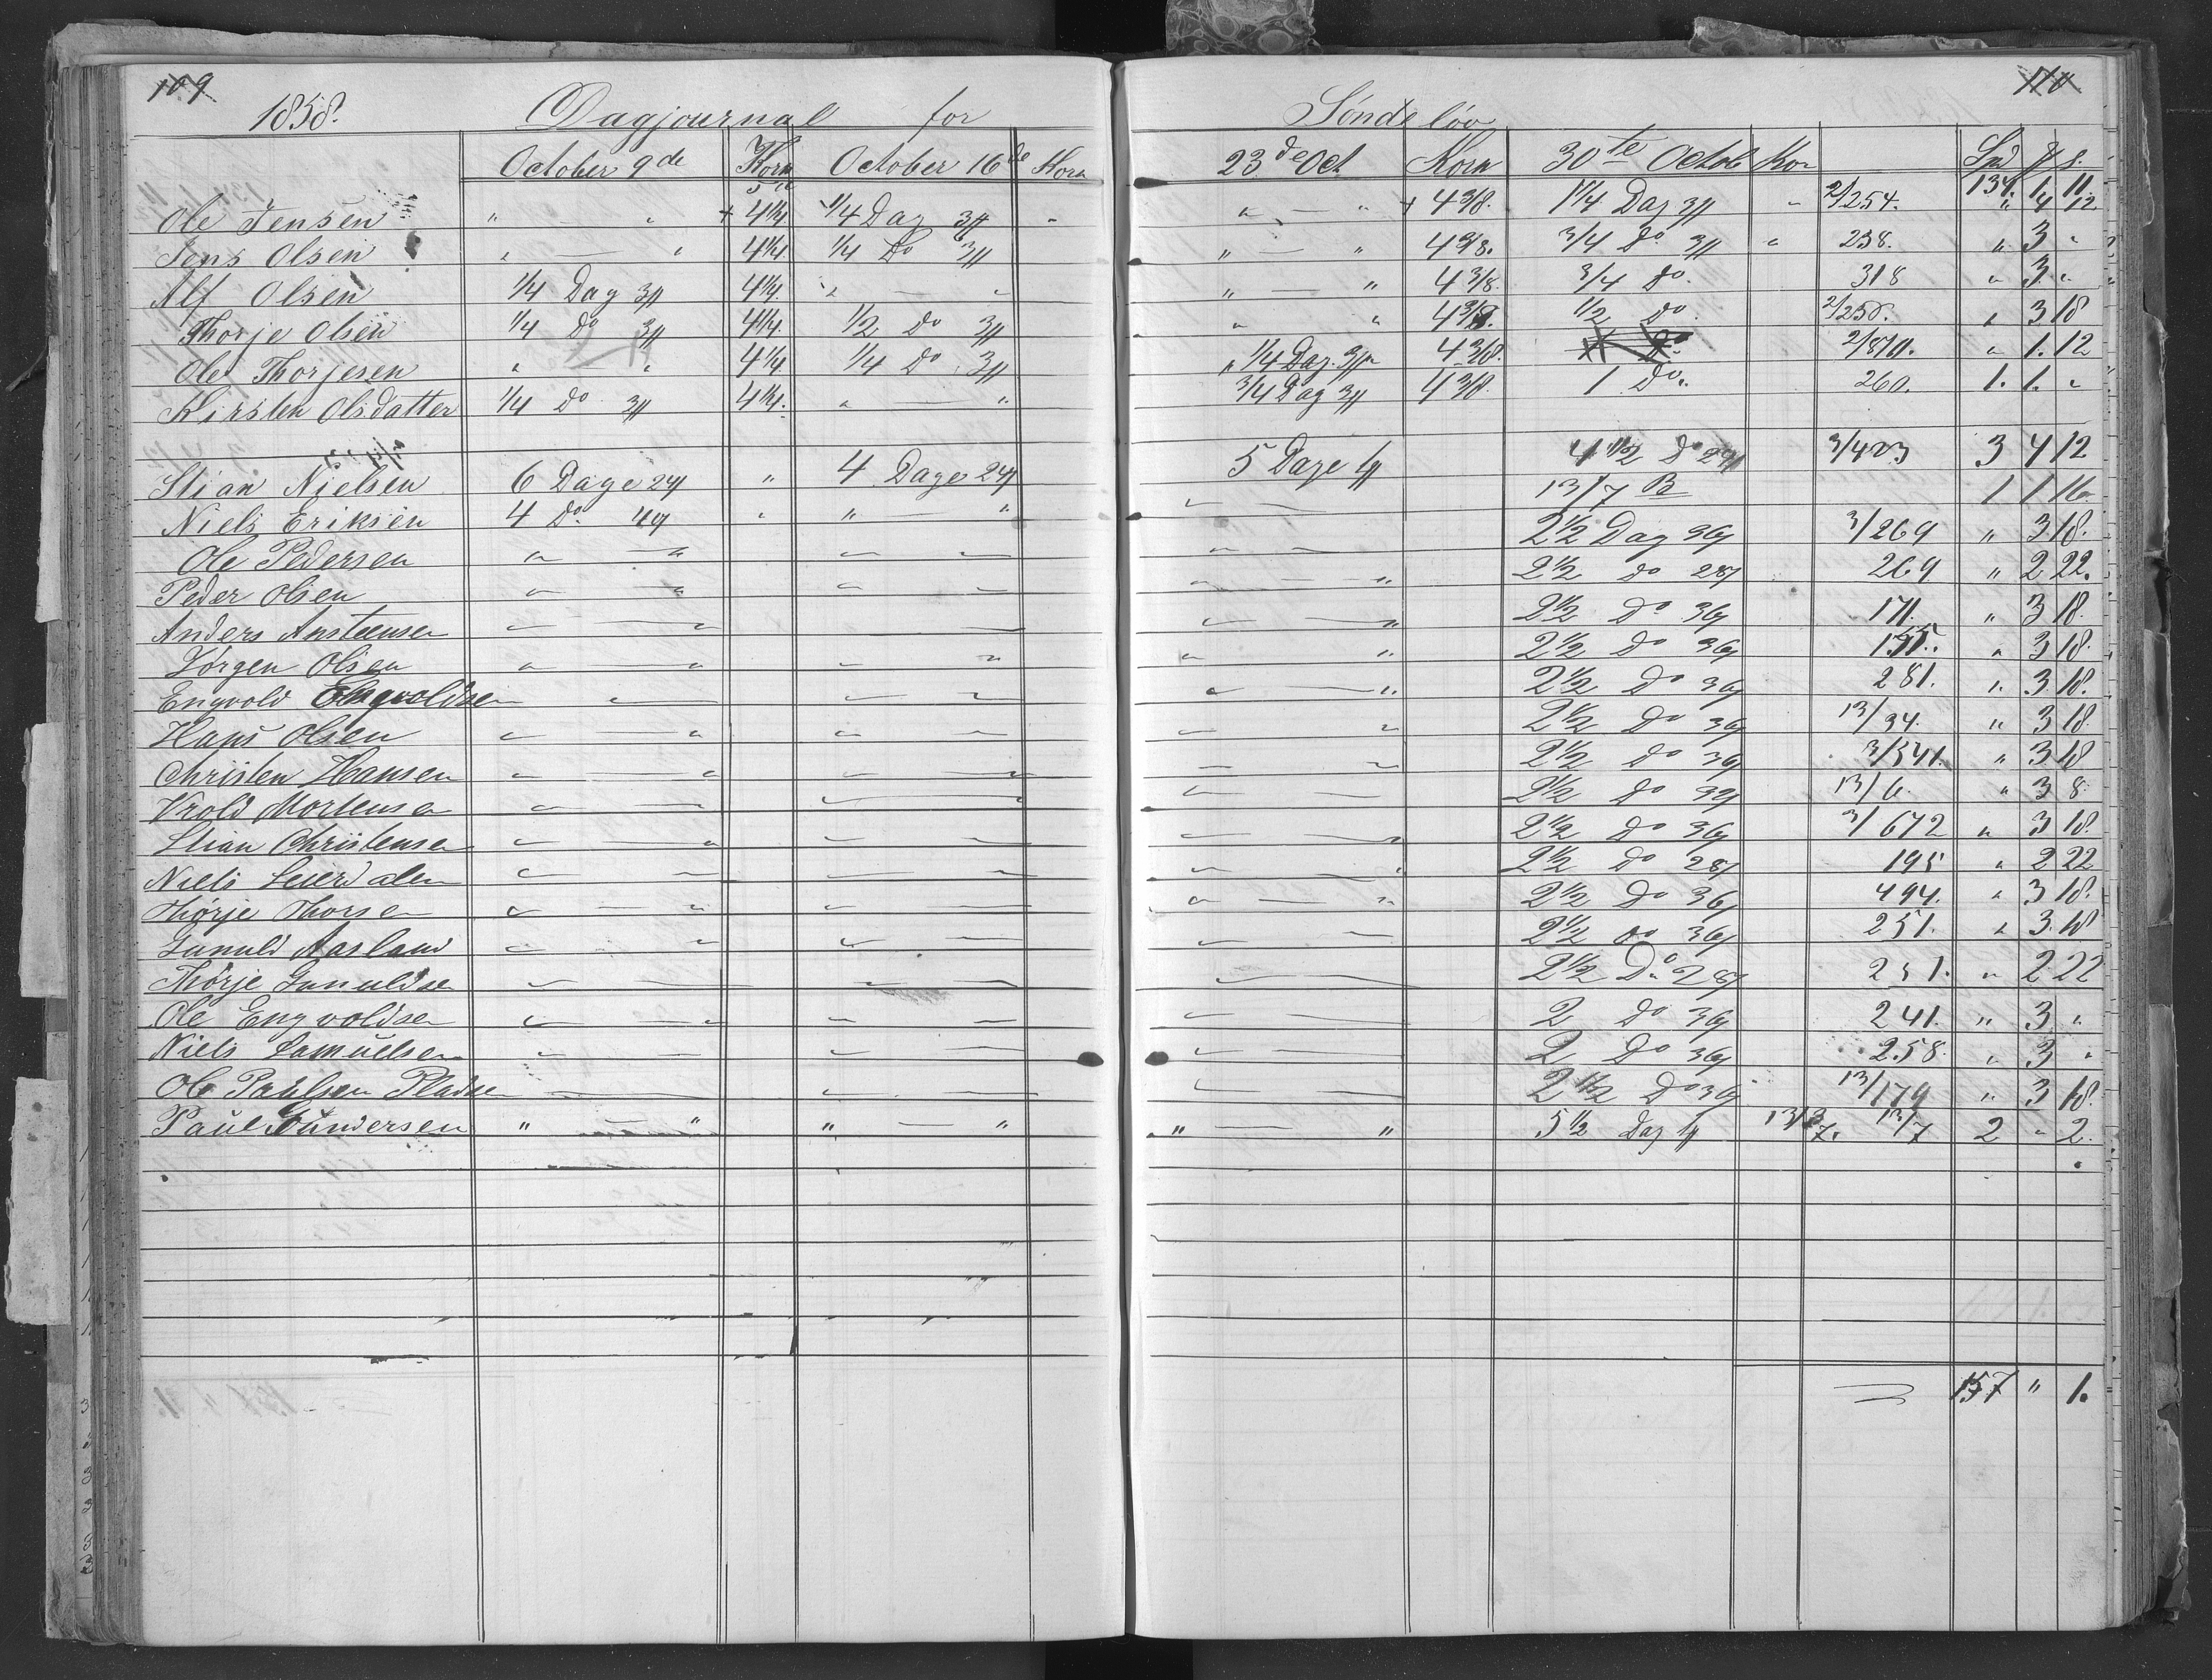 109 110
1858. Dagjournal for Söndeløv
October 9de Korn October 16de Korn 23de Oct Korn 30te Octob Kor Spd # s.
134. 1. 11.
Ole Jensen " — " + 4 1/4 1/4 Dag 3# " " — " + 4 3/8. 1 1/4 Dag 3# " 2/254. " 4 12
Jens Olsen " — " 4 1/4. 1/4 Do 3# " — " 4 3/8. 3/4 do 3# " 238. " 3 "
Alf Olsen 1/4 Dag 3# 4 1/4. " — " " — " 4 3/8. 3/4 do. 318 " 3. "
Thorje Olsen 1/4 Do 3# 4 1/4. 1/2 Do 3# " " 4 3/8. 1/2 do. 2/258. " 3 18
Ole Thorjesen " " 4 1/4 1/4 Do 3# " 1/4 Dag. 3# 4 3/8. do. 2/870. " 1. 12
Kirsten Olsdatter 1/4 Do 3# 4 1/4. " — " 3/4 Dag 3# 4 3/8. 1 Do. 260. 1. 1. "
Stian Nielsen 6 Dage 24 " 4 Dage 24 5 Dage 4 1/2 Do 24 3/423 3 4 12
Niels Eriksen 4 Do. " " — " " — 13/7 B 1 1 16.
Ole Pedersen " — " " — 2 1/2 Dag 36 3/269 " 3 18.
Peder Olsen " — " " — " — " 2 1/2 do 28 269 " 2 22.
Anders Ansteensen " — " — " — " 2 1/2 Do 36 171. " 3 18.
Jörgen Olsen " — " " — " " — " 2 1/2 Do 36 " 3 18.
Engvold Engvoldsen — " " — " — " 2 1/2 Do 36 281. " 3 18.
Hans Olsen " — " " — " — " 2 1/2 Do 36 13/94. " 3 18
Christen Hansen " — " " — " — " 2 1/2 do 36 3/341. " 3 18
Vrold Mortensen " — " " — " — 2 1/2 Do 32 13/6. " 3 8
Stian Christensen " — " " — " — " 2 1/2 Do 36 3/672 " 3 18.
Niels Leierdalen " — " — " — " 2 1/2 Do 28 195 " 2 22
Thörje Thorsen " — " " — " — " 2 1/2 Do 36 494. " 3 18.
Gunuld Aasland " — " " — " — 2 1/2 do 36 251. " 3. 18
Thörje Gunuldsen " — " " — " — 2 1/2 Do. 28 251. " 2 22
Ole Engvoldsen " — " " — " — 2 do 36 241. " 3 "
Niels Samuelsen " — " — " — 2 Do 36 258. " 3 "
Ole Paulsen Pladsen — " — " — 2 1/2 Do 36 13/179 " 3 18.
Paul Gundersen " — " " — " " — " 5 1/2 Dag 13/7. 13/7 2 " 2.
157 " 1.